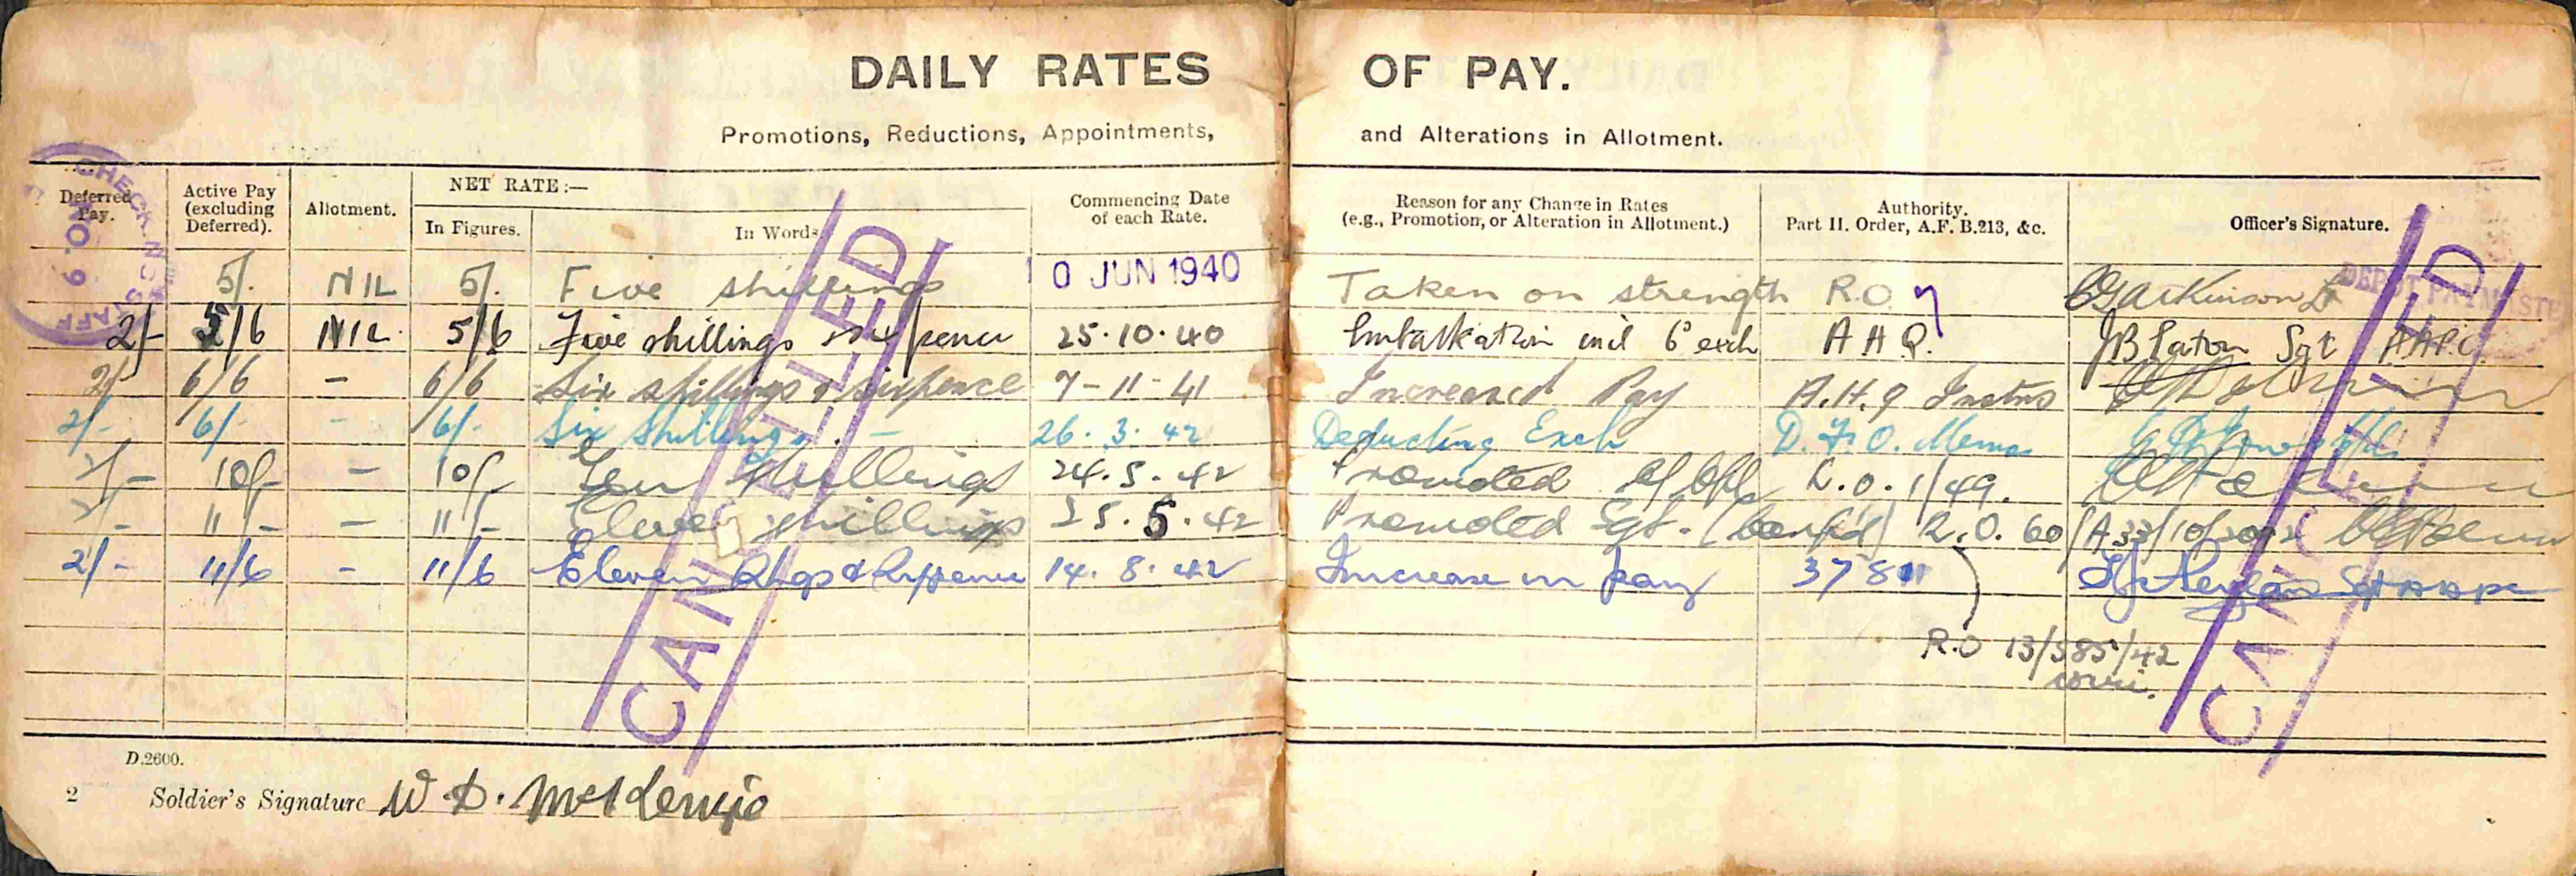 DAILY RATES OF PAY.
Promotions, Reductions, Appointments, and Alterations in Allotment.
CHECK STAFF
NO. 9
Deferred Pay.
Active Pay (excluding Deferred).
Allotment.
NET RATE:—
In Figures.
In Words
Commencing Date of each Rate.
Reason for any Change in Rates (e.g., Promotion, or Alteration in Allotment.)
Authority. Part II. Order, A.F. B.213, &c.
Officer's Signature.
5/. NIL 5/. Five shillings 10 JUN 1940 Taken on strength R.O.
DEPOT PAYMASTER
2/- 5/6 NIL. 5/6 Five shillings sixpence 25.10.40 Embarkation incl 6d exch A H Q. Sgt AAPC
2/- 6/6 – 6/6 Six shillings & sixpence 7-11-41 Increased Pay A.H.Q Instns
2/- 6/- – 6/- Six Shillings. – 26.3.42 Deducting Exch D.F.O. Memo
2/- 10/- – 10/- Ten Shillings 24.5.42 Promoted R.O. 1/49.
2/- 11/- – 11/- Eleven shillings 25.5.42 Promoted Sgt. (Conf'd) R.O. 60/A33/10/
2/- 11/6 – 11/6 Eleven Shgs & Sixpence 14.8.42 Increase in pay 3781 Sgt AAPC
R.O 13/585/42
CANCELLED
CANCELLED
D.2600.
2 Soldier's Signature W D. McKenzie